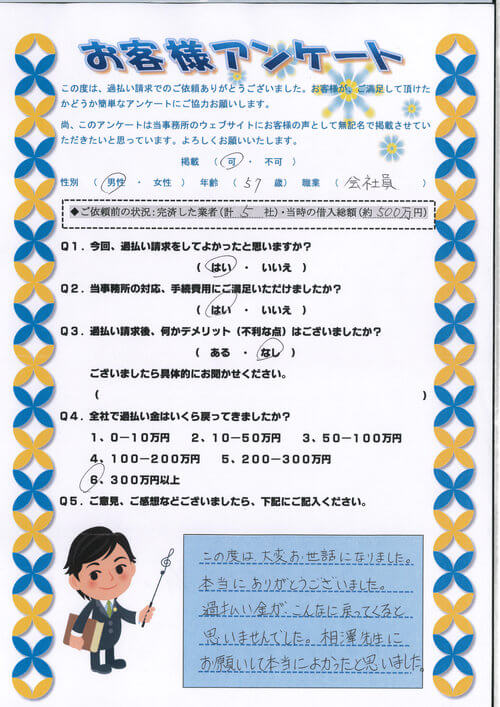 お客様アンケート
この度は、過払い請求でのご依頼ありがとうございました。お客様が、ご満足して頂けた
かどうか簡単なアンケートにご協力お願いします。
尚、このアンケートは当事務所のウェブサイトにお客様の声として無記名で掲載させてい
ただきたいと思っています。よろしくお願いいたします。
掲載 （ 可 ・ 不可 ）
性別 （ 男性 ・ 女性 ） 年齢 （ 57 歳） 職業 （ 会社員 ）
◆ご依頼前の状況：完済した業者（計 5 社）・当時の借入総額（約 500万円）
Q1．今回、過払い請求をしてよかったと思いますか？
（ はい ・ いいえ ）
Q2．当事務所の対応、手続費用にご満足いただけましたか？
（ はい ・ いいえ ）
Q3．過払い請求後、何かデメリット（不利な点）はございましたか？
（ ある ・ なし ）
ございましたら具体的にお聞かせください。
（ ）
Q4．全社で過払い金はいくら戻ってきましたか？
1、0－10万円 2、10－50万円 3、50－100万円
4、100－200万円 5、200－300万円
6、300万円以上
Q5．ご意見、ご感想などございましたら、下記にご記入ください。
この度は大変お世話になりました。
本当にありがとうございました。
過払い金がこんなに戻ってくると
思いませんでした。相澤先生に
お願いして本当によかったと思いました。